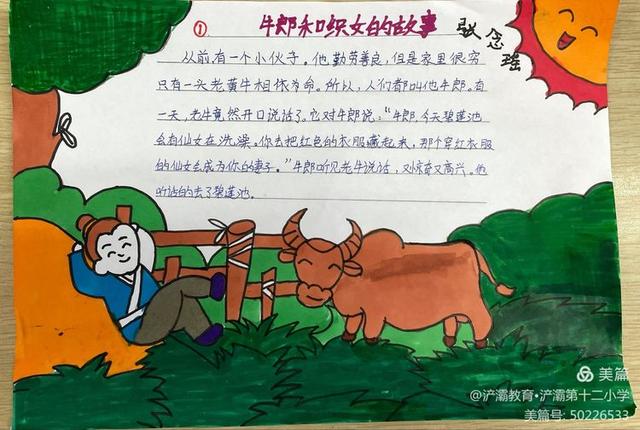 ① 牛郎和织女的故事
张念瑶
从前有一个小伙子。他勤劳善良,但是家里很穷
只有一头老黄牛相依为命。所以,人们都叫他牛郎。有
一天,老牛竟然开口说话了。它对牛郎说:“牛郎,今天碧莲池
会有仙女在洗澡。你去把红色的衣服藏起来,那个穿红衣服
的仙女会成为你的妻子。”牛郎听见老牛说话,又惊奇又高兴。他
听话的去了碧莲池。
美篇
@浐灞教育·浐灞第十二小学
美篇号: 50226533